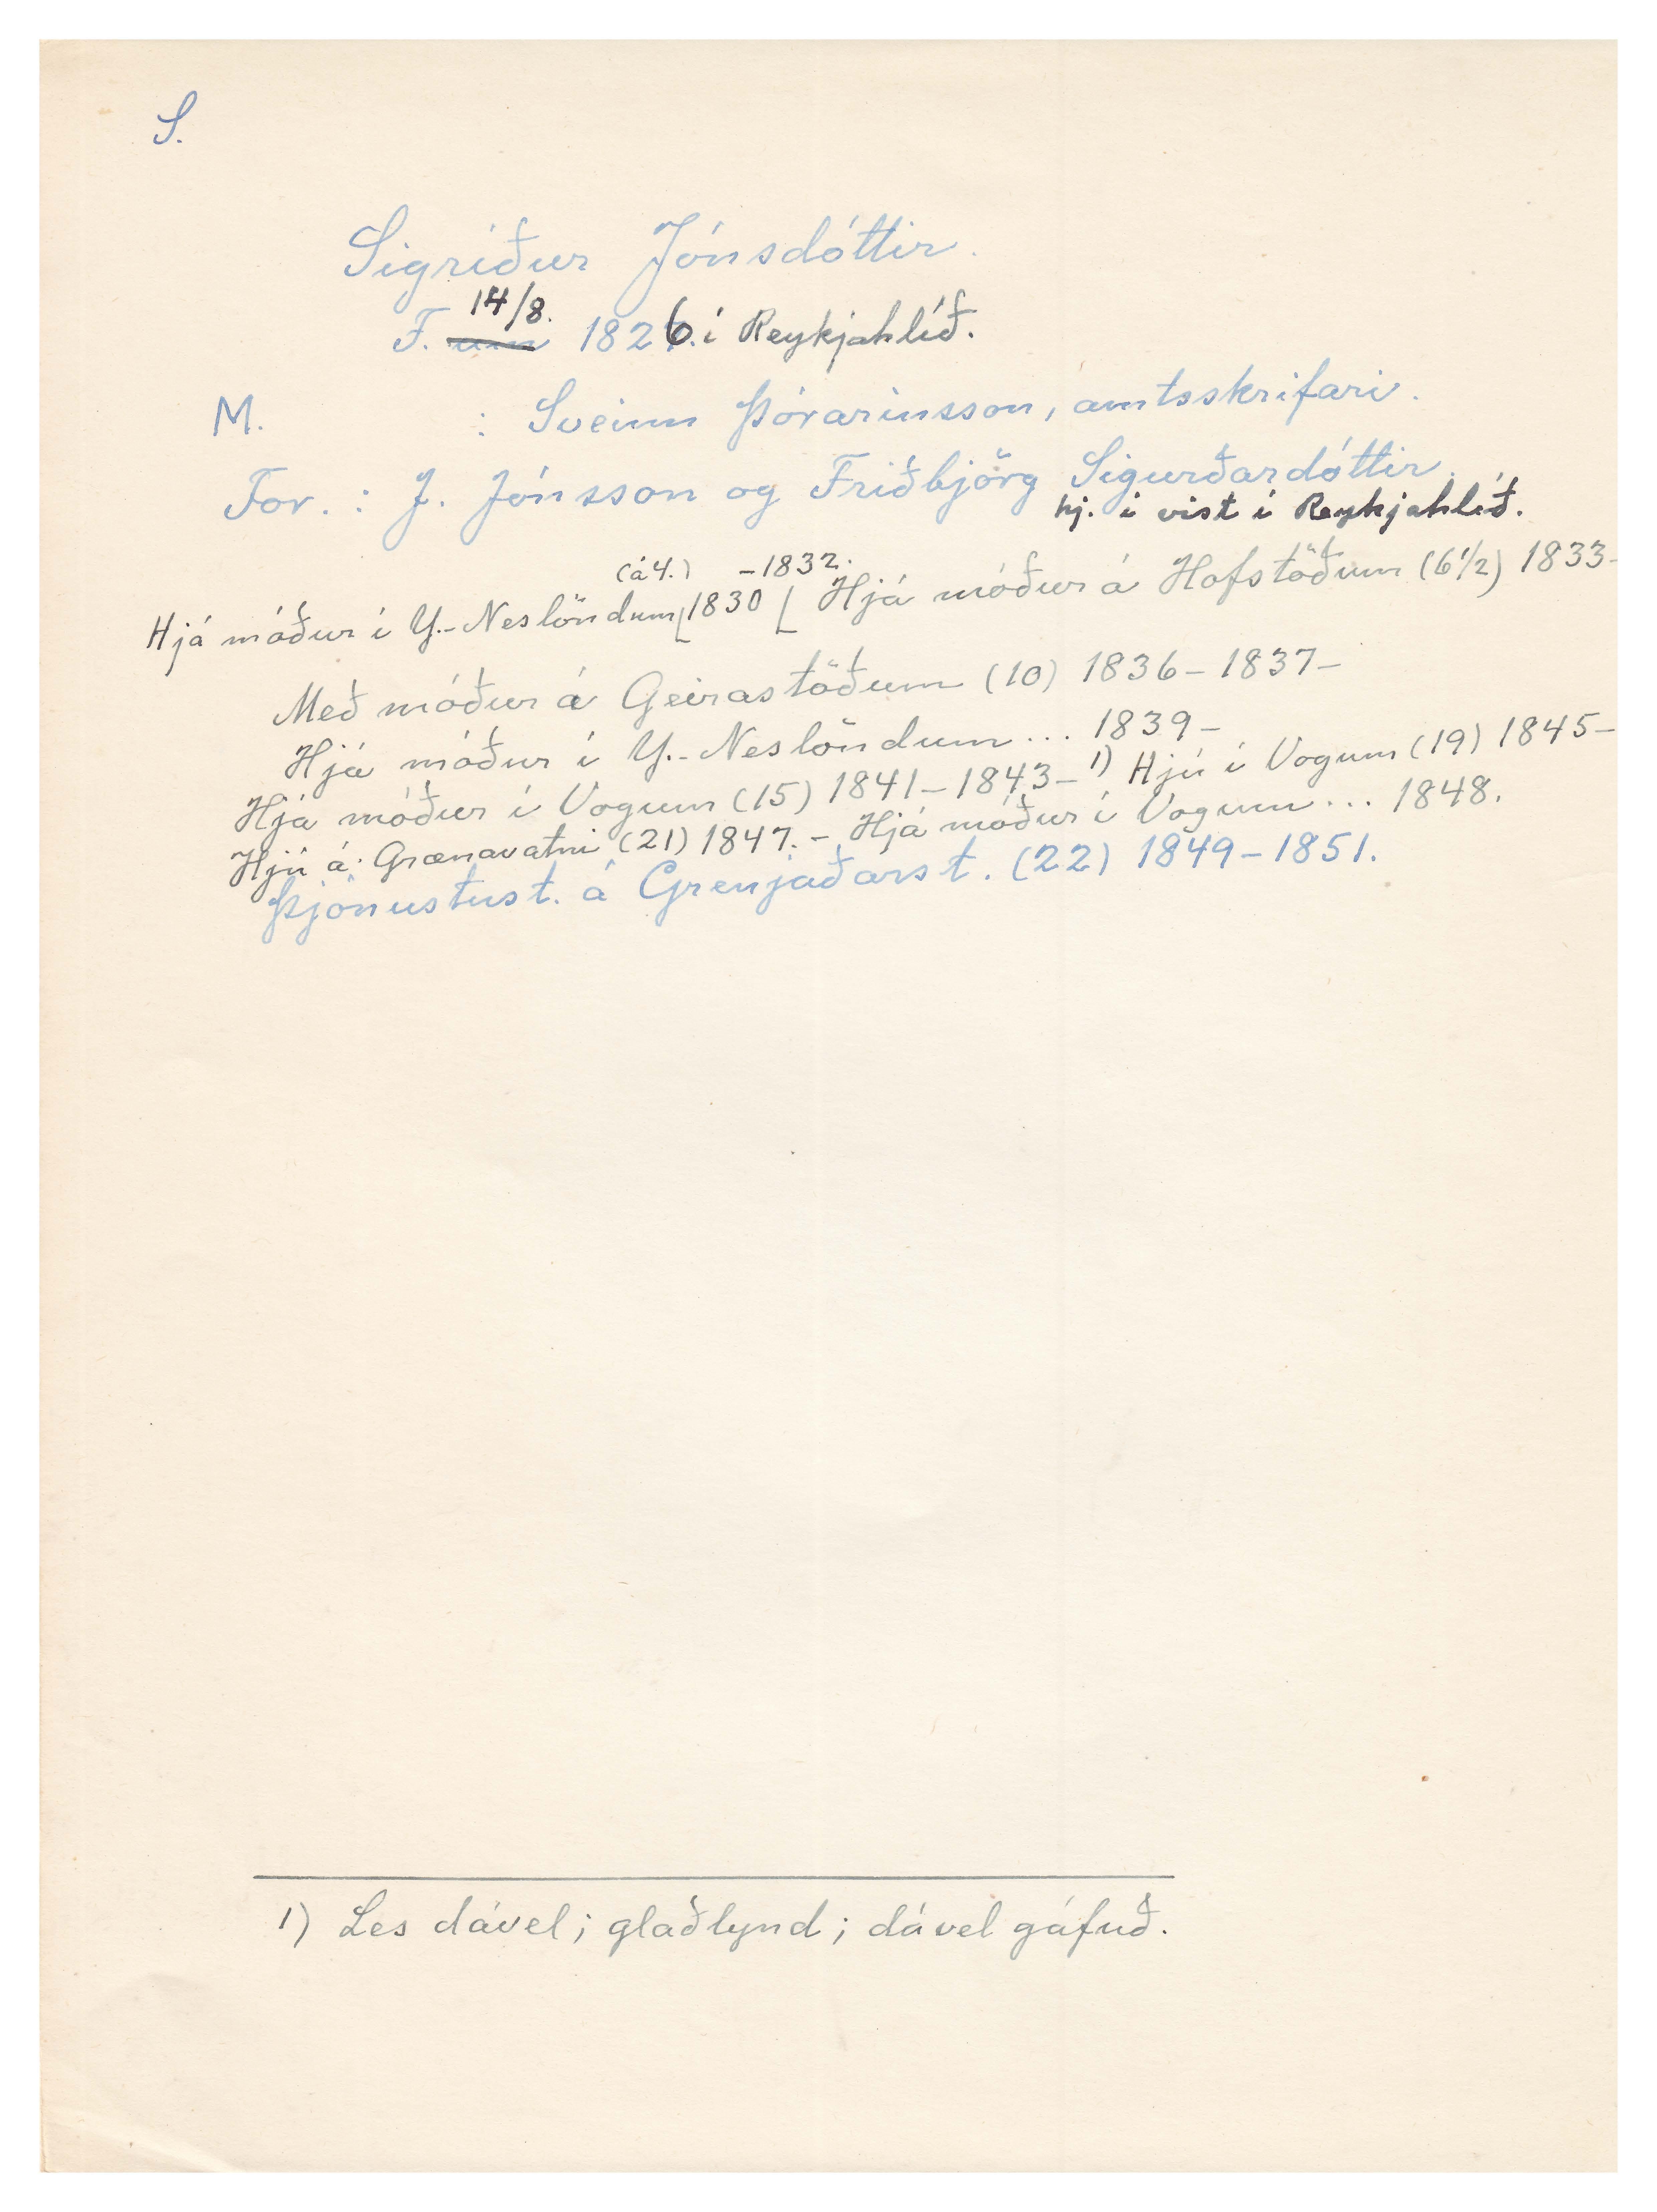 S.
Sigríður Jónsdóttir.
14/8.
F. um 1826. í Reykjahlíð.
M. : Sveinn Þórarinsson, amtsskrifari.
For. : J. Jónsson og Friðbjörg Sigurðardóttir.
hj. í vist í Reykjahlíð.
(á 4.) -1832.
Hjá móður í Y.-Neslöndum 1830 Hjá móður á Hofstöðum (6 1/2) 1833-
Með móður á Geirastöðum (10) 1836-1837-
Hjá móður í Y.-Neslöndum ... 1839-
Hjá móður í Vogum (15) 1841-1843- 1) Hjú í Vogum (19) 1845-
Hjú á Grænavatni (21) 1847. - Hjá móður í Vogum ... 1848.
Þjónustust. á Grenjaðarst. (22) 1849-1851.
1) Les dável; glaðlynd; dável gáfuð.